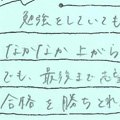 勉強をしていても
なかなか上がら
でも、最後まで志望
合格を勝ちとれ